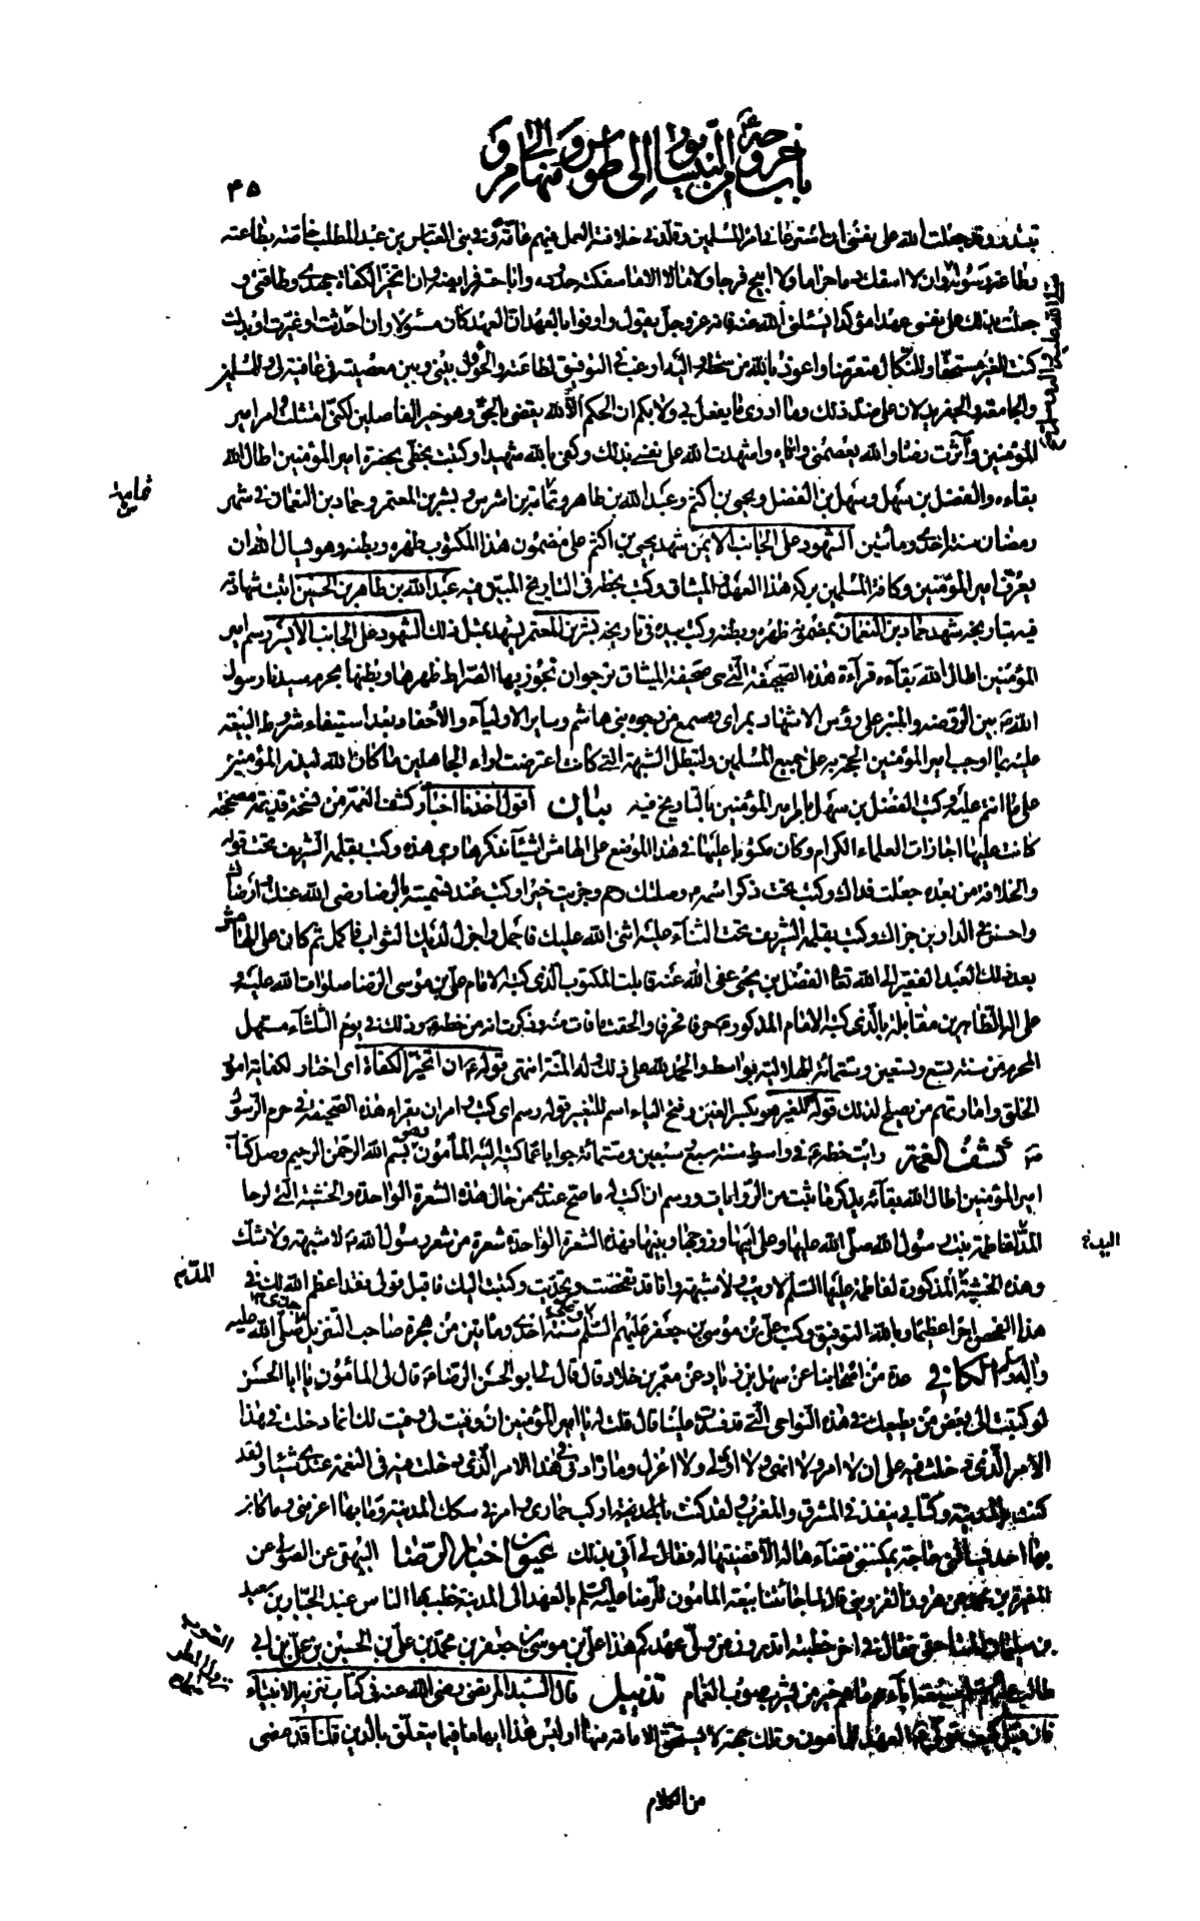 باب خروجه ع من النيسابور الى طوس ومنها الى مرو
٤٥
وقد جعلت الله على نفسى ان استرعانى امر المسلمين وقلدنى خلافته العمل فيهم عامة وفى بنى العباس بن عبد المطلب خاصة بطاعته
وطاعة رسوله وان لا اسفك دما حراما ولا ابيح فرجا ولا مالا الا ما سفكته حدوده واباحته فرايضه وان اتخير الكفاة جهدى وطاقتى و
جعلت بذلك على نفسى عهدا مؤكدا يسئلنى الله عنه فانه عز وجل يقول واوفوا بالعهد ان العهد كان مسئولا وان احدثت او غيرت او بدلت
كنت للغير مستحقا وللنكال متعرضا واعوذ بالله من سخطه واليه ارغب فى التوفيق لطاعته والحول بينى وبين معصيته فى عافية لى وللمسلمين
والجامعة والجفر يدلان على ضد ذلك وما ادرى ما يفعل بى ولا بكم ان الحكم الا لله يقضى بالحق وهو خير الفاصلين لكنى امتثلت امر امير
المؤمنين وآثرت رضاه والله يعصمنى واياه واشهدت الله على نفسى بذلك وكفى بالله شهيدا وكتبت بخطى بحضرة امير المؤمنين اطال الله
بقاءه والفضل بن سهل وسهل بن الفضل ويحيى بن اكثم وعبد الله بن طاهر وثمامة بن اشرس وبشر بن المعتمر وحماد بن النعمان فى شهر
رمضان سنة احدى ومأتين الشهود على الجانب الايمن شهد يحيى بن اكثم على مضمون هذا المكتوب ظهره وبطنه وهو يسال الله ان
يعرف امير المؤمنين وكافة المسلمين بركة هذا العهد والميثاق وكتب بخطه فى التاريخ المبين فيه عبد الله بن طاهر بن الحسين اثبت شهادته
فيه بتاريخه شهد حماد بن النعمان بمضمونه ظهره وبطنه وكتب بيده فى تاريخه بشر بن المعتمر يشهد بمثل ذلك الشهود على الجانب الايسر رسم امير
المؤمنين اطال الله بقاءه قراءة هذه الصحيفة التى هى صحيفة الميثاق نرجو ان نجوز بها الصراط ظهرها وبطنها بحرم سيدنا رسول
الله ص بين الروضة والمنبر على رؤس الاشهاد بمراى ومسمع من وجوه بنى هاشم وساير الاولياء والاحفاد بعد استيفاء شروط البيعة
عليه بما اوجب امير المؤمنين الحجة به على جميع المسلمين ولتبطل الشبهة التى كانت اعترضت اراء الجاهلين ما كان الله ليذر المؤمنين
على ما انتم عليه وكتب الفضل بن سهل بامر امير المؤمنين بالتاريخ فيه بيان اقول اخذنا اخبار كشف الغمة من نسخة قديمة مصححة
كانت عليها اجازات العلماء الكرام وكان مكتوبا عليها فى هذا الموضع على الهامش اشياء نذكرها وهى هذه وكتب بقلمه الشريف تحت قوله
والخلافة من بعده جعلت فداك وكتب تحت ذكر اسمه ع وصلتك رحم وجزيت خيرا وكتب عند تسميته بالرضا رضى الله عنك وارضاك
واحسن فى الدارين جزاك وكتب بقلمه الشريف تحت الثناء عليه اثنى الله عليك فاجمل واجزل لديك الثواب فاكمل ثم كان على الهامش
بعد ذلك العبد الفقير الى الله تعالى الفضل بن يحيى عفى الله عنه قابلت المكتوب الذى كتبه الامام على بن موسى الرضا صلوات الله عليه و
على اله الطاهرين مقابلة بالذى كتبه الامام المذكور ع حرفا فحرفا والحقت ما فات منه وذكرت انه من خطه ع وذلك فى يوم الثلثاء مستهل
المحرم من سنة تسع وتسعين وستمائة الهلالية بواسط والحمد لله على ذلك وله المنة انتهى قوله ع ان اتخير الكفاة اى اختار لكفاية امور
الخلق وامارتهم من يصلح لذلك قوله للغير هو بكسر الغين وفتح الياء اسم للتغير قوله رسم اى كتب وامر ان يقراء هذه الصحيفة فى حرم الرسول
ص كشف الغمة رايت خطه ع فى واسط سنة سبع وسبعين وستمائة جوابا عما كتبه اليه المأمون وهو بسم الله الرحمن الرحيم وصل كتاب
امير المؤمنين اطال الله بقائه يذكر ما ثبت من الروايات ورسم ان اكتب له ما صح عندى من حال هذه الشعرة الواحدة والخشبة التى لرحا
المد لفاطمة بنت رسول الله صلى الله عليها وعلى ابيها وزوجها وبنيها فهذه الشعرة الواحدة شعرة من شعر رسول الله ص لا شبهة ولا شك
وهذه الخشبة المذكورة لفاطمة عليها السلام لا ريب ولا شبهة وانا قد تفحصت وتحديت وكتبت اليك فاقبل قولى فقد اعظم الله لك فى
هذا الفحص اجرا عظيما وبالله التوفيق وكتب على بن موسى بن جعفر عليهم السلام سنة احدى ومأتين من هجرة صاحب التنزيل صلى الله عليه
واله وسلم الكافى عدة من اصحابنا عن سهل بن زياد عن معمر بن خلاد قال قال لى ابو الحسن الرضا ع قال لى المأمون يا ابا الحسن
لو كتبت الى بعض من يطيعك فى هذه النواحى التى قد فسدت علينا قال قلت له يا امير المؤمنين ان وفيت لى وفيت لك انما دخلت فى هذا
الامر الذى دخلت فيه على ان لا امر ولا انهى ولا اولى ولا اعزل وما زادنى هذا الامر الذى دخلت فيه فى النعمة عندى شيئا ولقد
كنت بالمدينة وكتابى ينفذ فى المشرق والمغرب ولقد كنت بالمدينة اركب حمارى وامر فى سكك المدينة وما بها اعز منى وما كان
بها احد يسالنى حاجة يمكننى قضاءها له الا قضيتها له فقال لى افى بذلك عيون اخبار الرضا البيهقى عن الصولى عن
المغيرة بن محمد عن هرون الفروينى قال لما جائتنا بيعة المامون للرضا عليه السلم بالعهد الى المدينة خطب بها الناس عبد الجبار بن سعيد
بن سليمان المساحقى فقال فى اخر خطبته اتدرون من ولى عهدكم هذا على بن موسى بن جعفر بن محمد بن على بن الحسين بن على بن ابى
طالب عليهم السلام سبعة اباءهم ما هم خير من يشرب صوب الغمام تذييل قال السيد المرتضى رضى الله عنه فى كتاب تنزيه الانبياء
فان قيل كيف تولى ع العهد للمامون وتلك جهة لا يستحق الامامة منها اوليس هذا ايهاما فيما يتعلق بالدين قلنا قد مضى
من الكلام
اليدة
المد